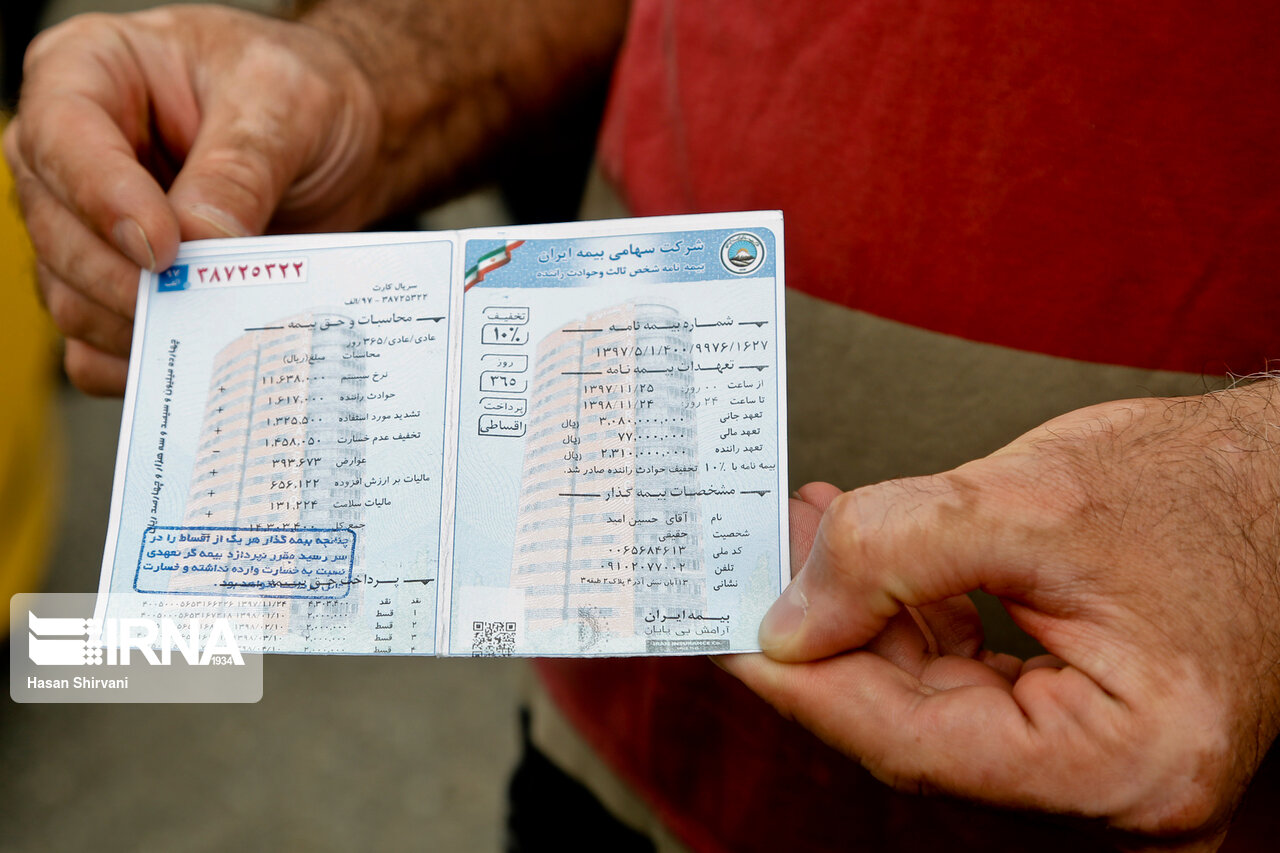 شرکت سهامی بیمه ایران
بیمه نامه شخص ثالث وحوادث راننده
تخفیف
۱۰%
روز
۳۶۵
پرداخت
اقساطی
شماره بیمه نامه
۱۳۹۷/۵/۱/۴۰۰/۹۹۷۶/۱۶۲۷
تعهدات بیمه نامه
از ساعت ۰۰ روز: ۱۳۹۷/۱۱/۲۵
تا ساعت ۲۴ روز: ۱۳۹۸/۱۱/۲۴
تعهد جانی ۳.۰۸۰.۰۰۰.۰۰۰ ریال
تعهد مالی ۷۷.۰۰۰.۰۰۰ ریال
تعهد راننده ۲.۳۱۰.۰۰۰.۰۰۰ ریال
بیمه نامه با ۱۰% تخفیف حوادث راننده صادر شد.
مشخصات بیمه گذار
نام آقای حسین امید
شخصیت حقیقی
کد ملی ۰۰۶۵۶۸۴۶۱۳
تلفن ۰۹۱۰۲۰۷۷۰۰۲
نشانی
بیمه ایران
آرامش بی پایان
IRAN INSURANCE CO.
۹۷
الف
۳۸۷۲۵۳۲۲
سریال کارت
۹۷/الف - ۳۸۷۲۵۳۲۲
محاسبات و حق بیمه
عادی/عادی/۳۶۵ روز
محاسبات مبلغ(ریال)
نرخ سیستم ۱۱.۶۳۸.۰۰۰ +
حوادث راننده ۱.۶۱۷.۰۰۰ +
تشدید مورد استفاده ۱.۳۲۵.۵۰۰ +
تخفیف عدم خسارت ۱.۴۵۸.۰۵۰ −
عوارض ۳۹۳.۶۷۳ +
مالیات بر ارزش افزوده ۶۵۶.۱۲۲ +
مالیات سلامت ۱۳۱.۲۲۴ +
جمع کل ۱۴.۳۰۳.۴۰۰
چهارده میلیون و سیصد و سه هزار و چهارصد ریال
چنانچه بیمه گذار هر یک از اقساط را در
سر رسید مقرر نپردازد بیمه گر تعهدی
نسبت به خسارت وارده نداشته و خسارت
پرداخت حق بیمه
نقد ۴.۳۰۳.۴۰۰ ۱۳۹۷/۱۱/۲۴
قسط ۱ ۲.۰۰۰.۰۰۰
قسط ۲ ۲.۰۰۰.۰۰۰
قسط ۳ ۲.۰۰۰.۰۰۰
قسط ۴
IRNA
1934
Hasan Shirvani